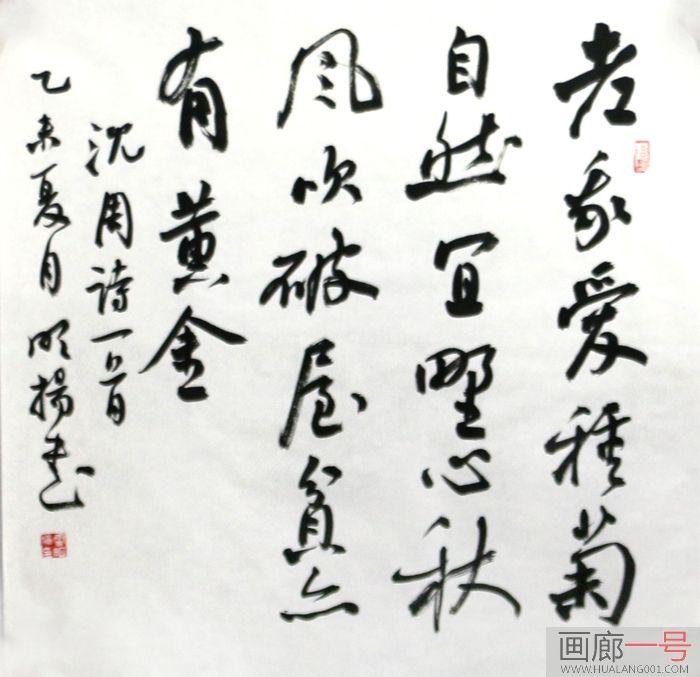 老我爱種菊
自然宜野心秋
風吹破屋貧亦
有黄金
沈周诗一首
乙未夏月 明揚书
画廊一号
WWW.HUALANG001.COM